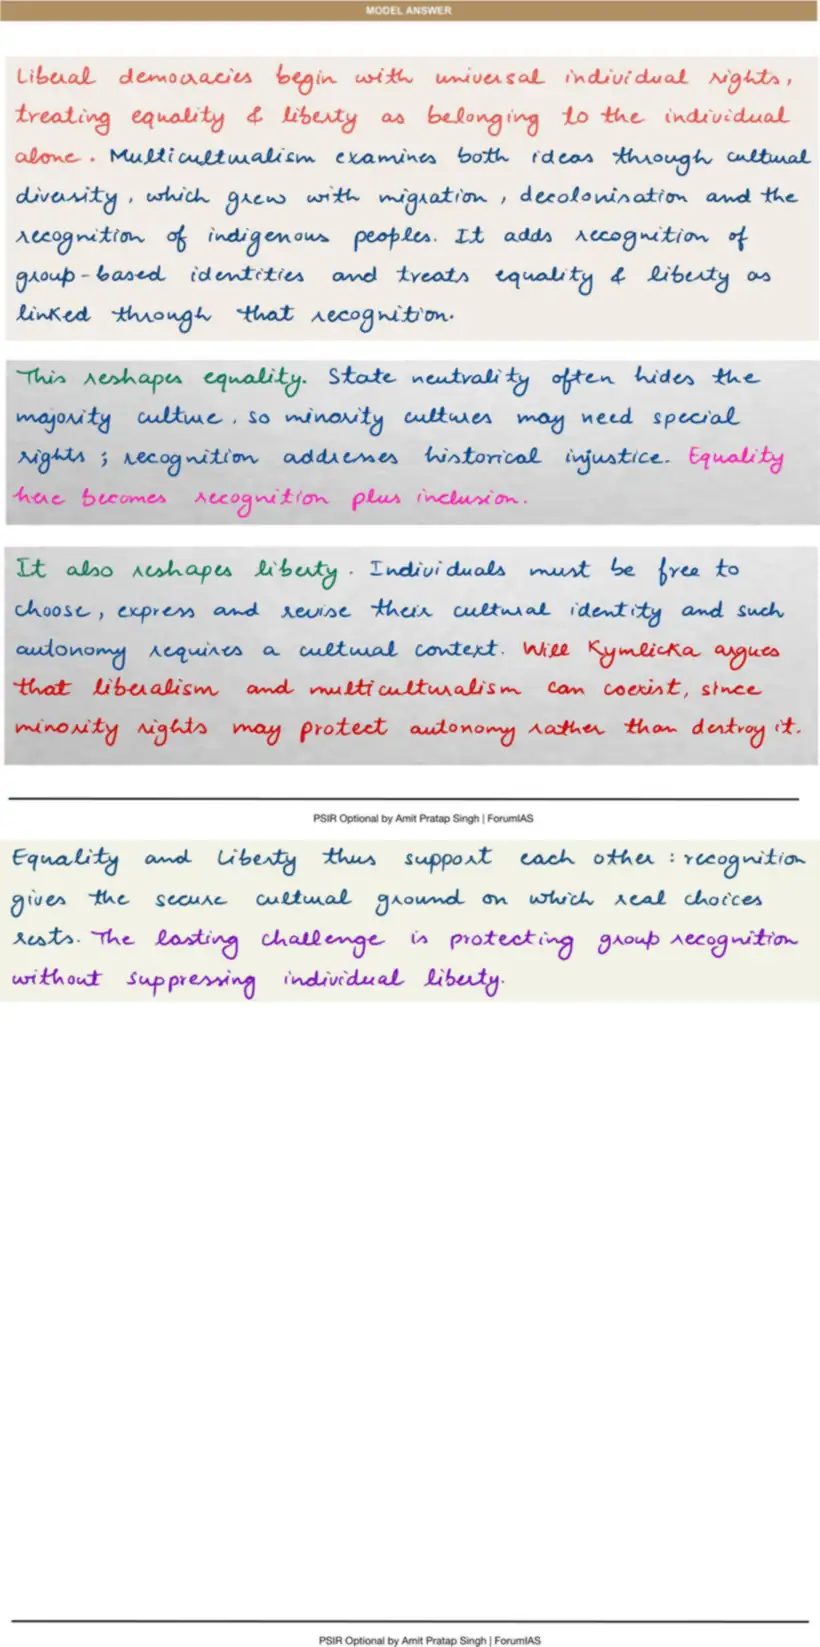 MODEL ANSWER
Liberal democracies begin with universal individual rights,
treating equality & liberty as belonging to the individual
alone. Multiculturalism examines both ideas through cultural
diversity, which grew with migration, decolonisation and the
recognition of indigenous peoples. It adds recognition of
group-based identities and treats equality & liberty as
linked through that recognition.
This reshapes equality. State neutrality often hides the
majority culture, so minority cultures may need special
rights; recognition addresses historical injustice. Equality
here becomes recognition plus inclusion.
It also reshapes liberty. Individuals must be free to
choose, express and revise their cultural identity and such
autonomy requires a cultural context. Will Kymlicka argues
that liberalism and multiculturalism can coexist, since
minority rights may protect autonomy rather than destroy it.
PSIR Optional by Amit Pratap Singh | ForumIAS
Equality and Liberty thus support each other : recognition
gives the secure cultural ground on which real choices
rests. The lasting challenge is protecting group recognition
without suppressing individual liberty.
PSIR Optional by Amit Pratap Singh | ForumIAS